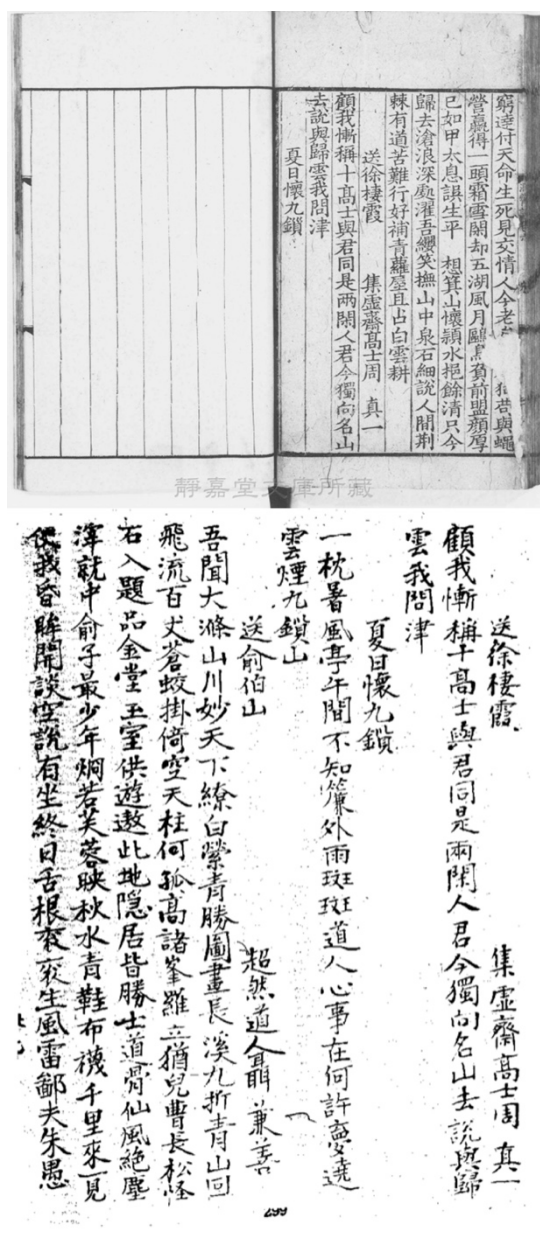 窮達付天命生死見交情人今老
狂昔與蠅
營贏得一頭霜雪閑却五湖風月鷗鳥負前盟顔厚
已如甲太息誤生平　想箕山懷潁水挹餘清只今
歸去滄浪深處濯吾纓笑撫山中泉石細說人間荆
棘有道苦難行好補青蘿屋且占白雲耕
送徐棲霞　集虛齋高士周　真一
顧我慚稱十高士與君同是兩閑人君今獨向名山
去說與歸雲我問津
夏日懷九鎖
靜嘉堂文庫所藏
送徐棲霞　集虛齋高士周　真一
顧我慚稱十高士與君同是兩閑人君今獨向名山去說與歸
雲我問津
夏日懷九鎖
一枕暑風亭午間不知簾外雨斑斑道人心事在何許夢遶
雲煙九鎖山
送俞伯山　超然道人聶　兼善
吾聞大滌山川妙天下繚白縈青勝圖畫長溪九折青山回
飛流百丈蒼蛟掛倚空天柱何孤高諸峯羅立猶兒曹長松怪
石入題品金堂玉室供遊遨此地隱居皆勝士道骨仙風絶塵
滓就中俞子最少年烱若芙蓉映秋水青鞋布襪千里來一見
使我昏眸開談空說有坐終日舌根衮衮生風雷鄙夫朱愚
299